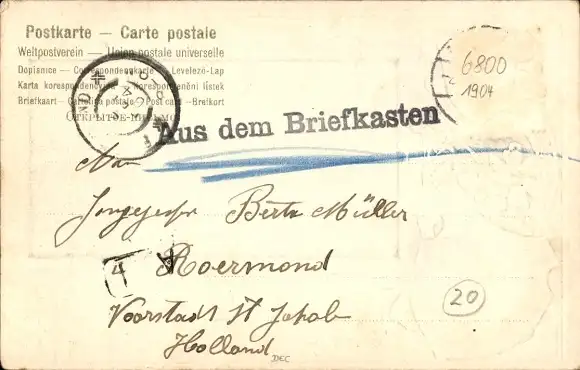 Postkarte — Carte postale
Weltpostverein — Union postale universelle
Dopisnice — Correspondenzkarte — Levelezö-Lap
Karta korespondencyjna — Korespondenční lístek
Briefkaart — Cartolina postale — Post card — Brefkort
ОТКРЫТОЕ ПИСЬМО
6800
1904
Aus dem Briefkasten
An
Bertx Müller
4
Roermond
20
Voorstadt St Jakob
Holland
DEC